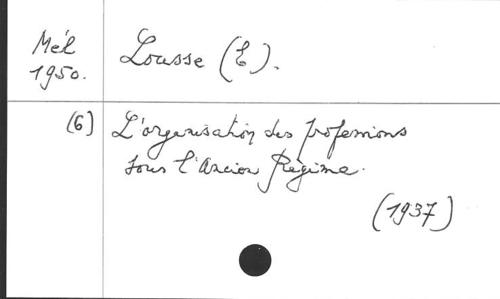 Mél
1950.
Lousse (E).
(6) L'organisation des professions
sous l'Ancien Régime.
(1937)